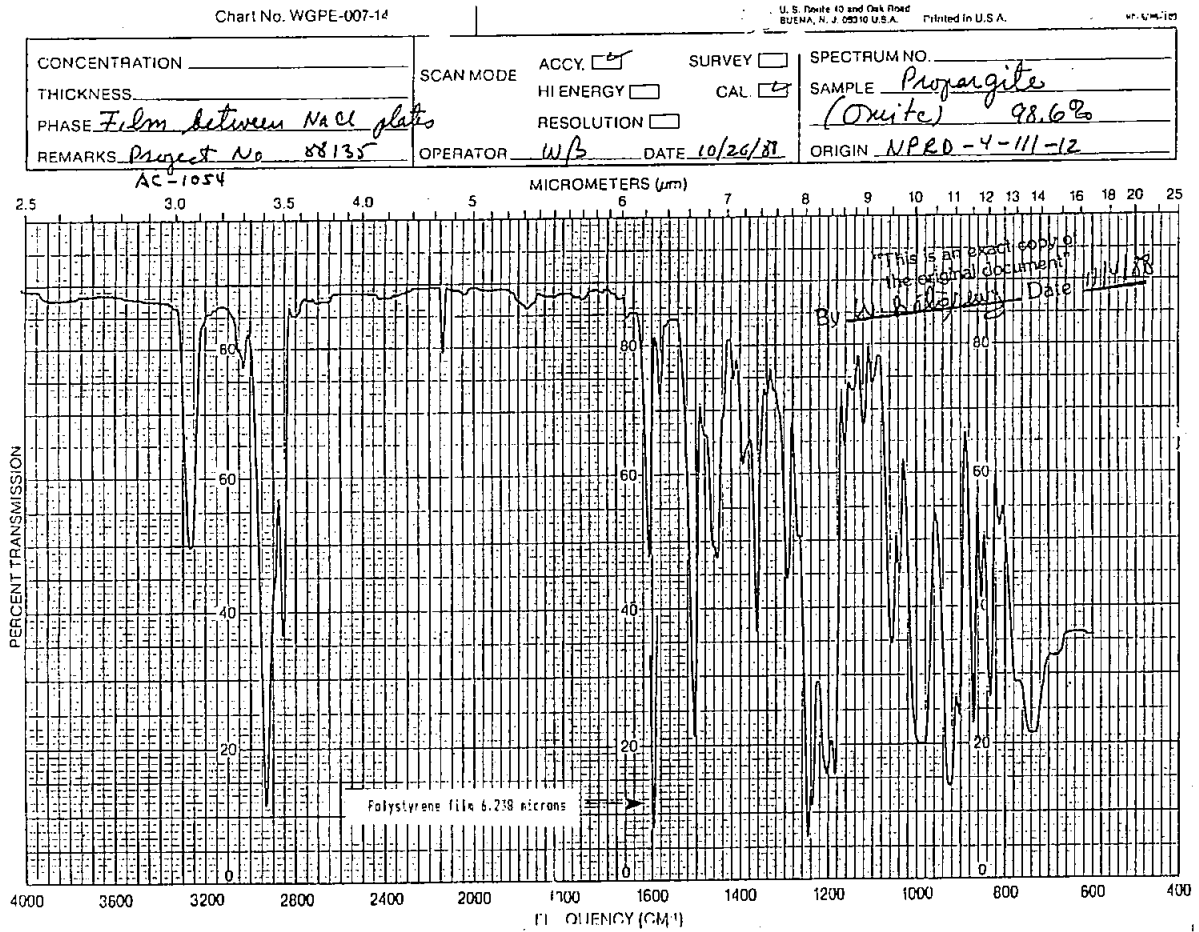 Chart No. WGPE-007-14
U. S. Route 40 and Oak Road
BUENA, N. J. 08310 U.S.A. Printed in U.S.A.
CONCENTRATION
THICKNESS
PHASE Film between NaCl plates
REMARKS Project No 88135
AC-1054
SCAN MODE
ACCY. SURVEY
HI ENERGY CAL.
RESOLUTION
OPERATOR W/B DATE 10/26/88
SPECTRUM NO.
SAMPLE Propargite
(Omite) 98.6%
ORIGIN NPRD-4-111-12
MICROMETERS (µm)
2.5 3.0 3.5 4.0 5 6 7 8 9 10 11 12 13 14 16 18 20 25
"This is an exact copy of
the original document"
By Date 11/14/88
PERCENT TRANSMISSION
80 80 80
60 60 60
40 40 40
20 20 20
Polystyrene film 6.238 microns
0 0 0
4000 3600 3200 2800 2400 2000 1800 1600 1400 1200 1000 800 600 400
(CM-1)